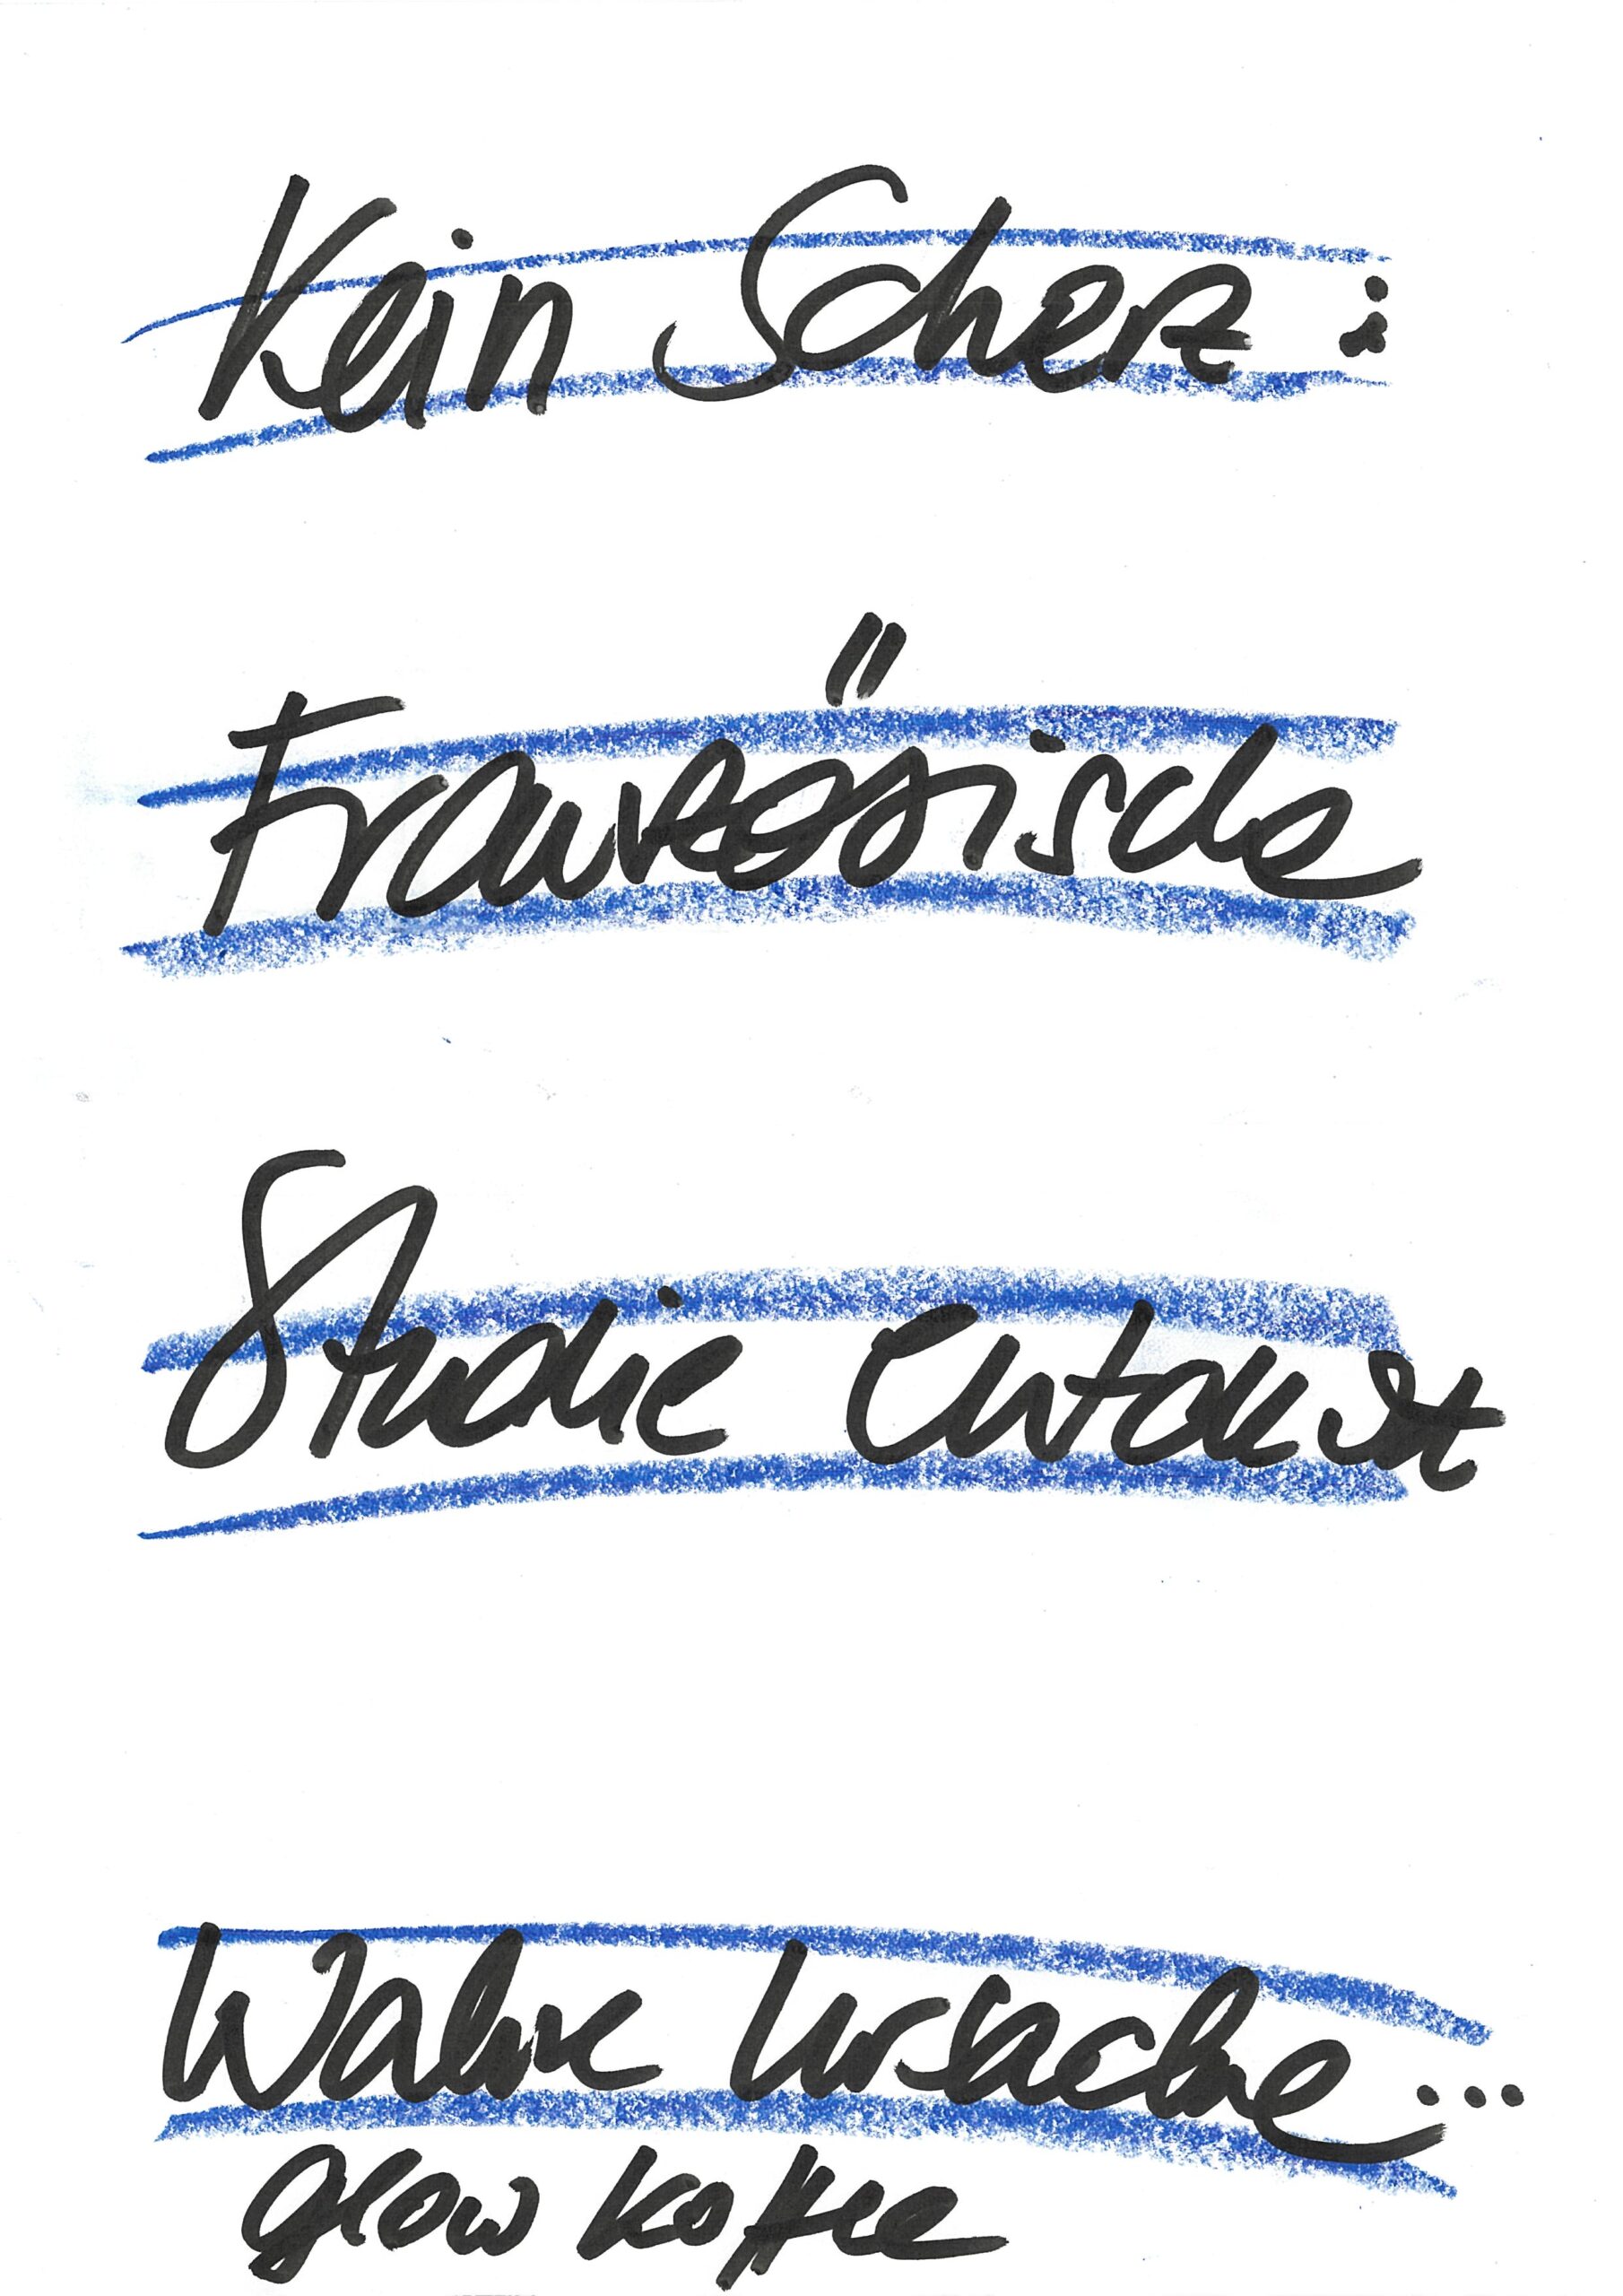 Kein Scherz:
Französische
Studie entdeckt
Wahre Ursache...
glow koffee